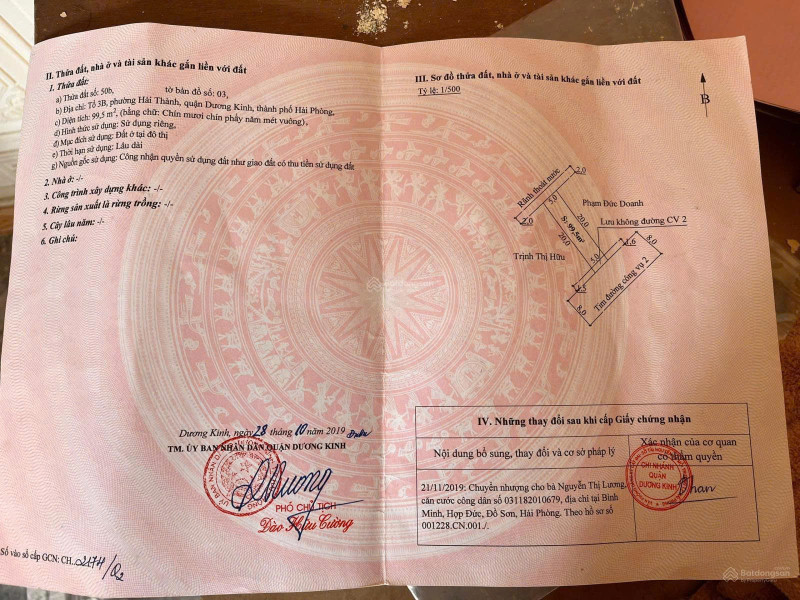 II. Thửa đất, nhà ở và tài sản khác gắn liền với đất
1. Thửa đất:
a) Thửa đất số: 50b, tờ bản đồ số: 03,
b) Địa chỉ: Tổ 3B, phường Hải Thành, quận Dương Kinh, thành phố Hải Phòng,
c) Diện tích: 99,5 m², (bằng chữ: Chín mươi chín phẩy năm mét vuông),
d) Hình thức sử dụng: Sử dụng riêng,
đ) Mục đích sử dụng: Đất ở tại đô thị
e) Thời hạn sử dụng: Lâu dài
g) Nguồn gốc sử dụng: Công nhận quyền sử dụng đất như giao đất có thu tiền sử dụng đất
2. Nhà ở: -/-
3. Công trình xây dựng khác: -/-
4. Rừng sản xuất là rừng trồng: -/-
5. Cây lâu năm: -/-
6. Ghi chú:
Dương Kinh, ngày 28 tháng 10 năm 2019
TM. ỦY BAN NHÂN DÂN QUẬN DƯƠNG KINH
PHÓ CHỦ TỊCH
Đào Hữu Cường
Số vào sổ cấp GCN: CH..02174/Q2
III. Sơ đồ thửa đất, nhà ở và tài sản khác gắn liền với đất
Tỷ lệ: 1/500
B
Rãnh thoát nước
2,0
2,0
5,0
20,0
S: 99,5m²
20,0
Phạm Đức Doanh
Trịnh Thị Hữu
Lưu không đường CV 2
1,6
8,0
5,0
1,5
8,0
Tim đường công vụ 2
IV. Những thay đổi sau khi cấp Giấy chứng nhận
Nội dung bổ sung, thay đổi và cơ sở pháp lý
Xác nhận của cơ quan
có thẩm quyền
21/11/2019: Chuyển nhượng cho bà Nguyễn Thị Lương,
căn cước công dân số 031182010679, địa chỉ tại Bình
Minh, Hợp Đức, Đồ Sơn, Hải Phòng. Theo hồ sơ số
001228.CN.001./.
CHI NHÁNH
QUẬN
DƯƠNG KINH
Batdongsan